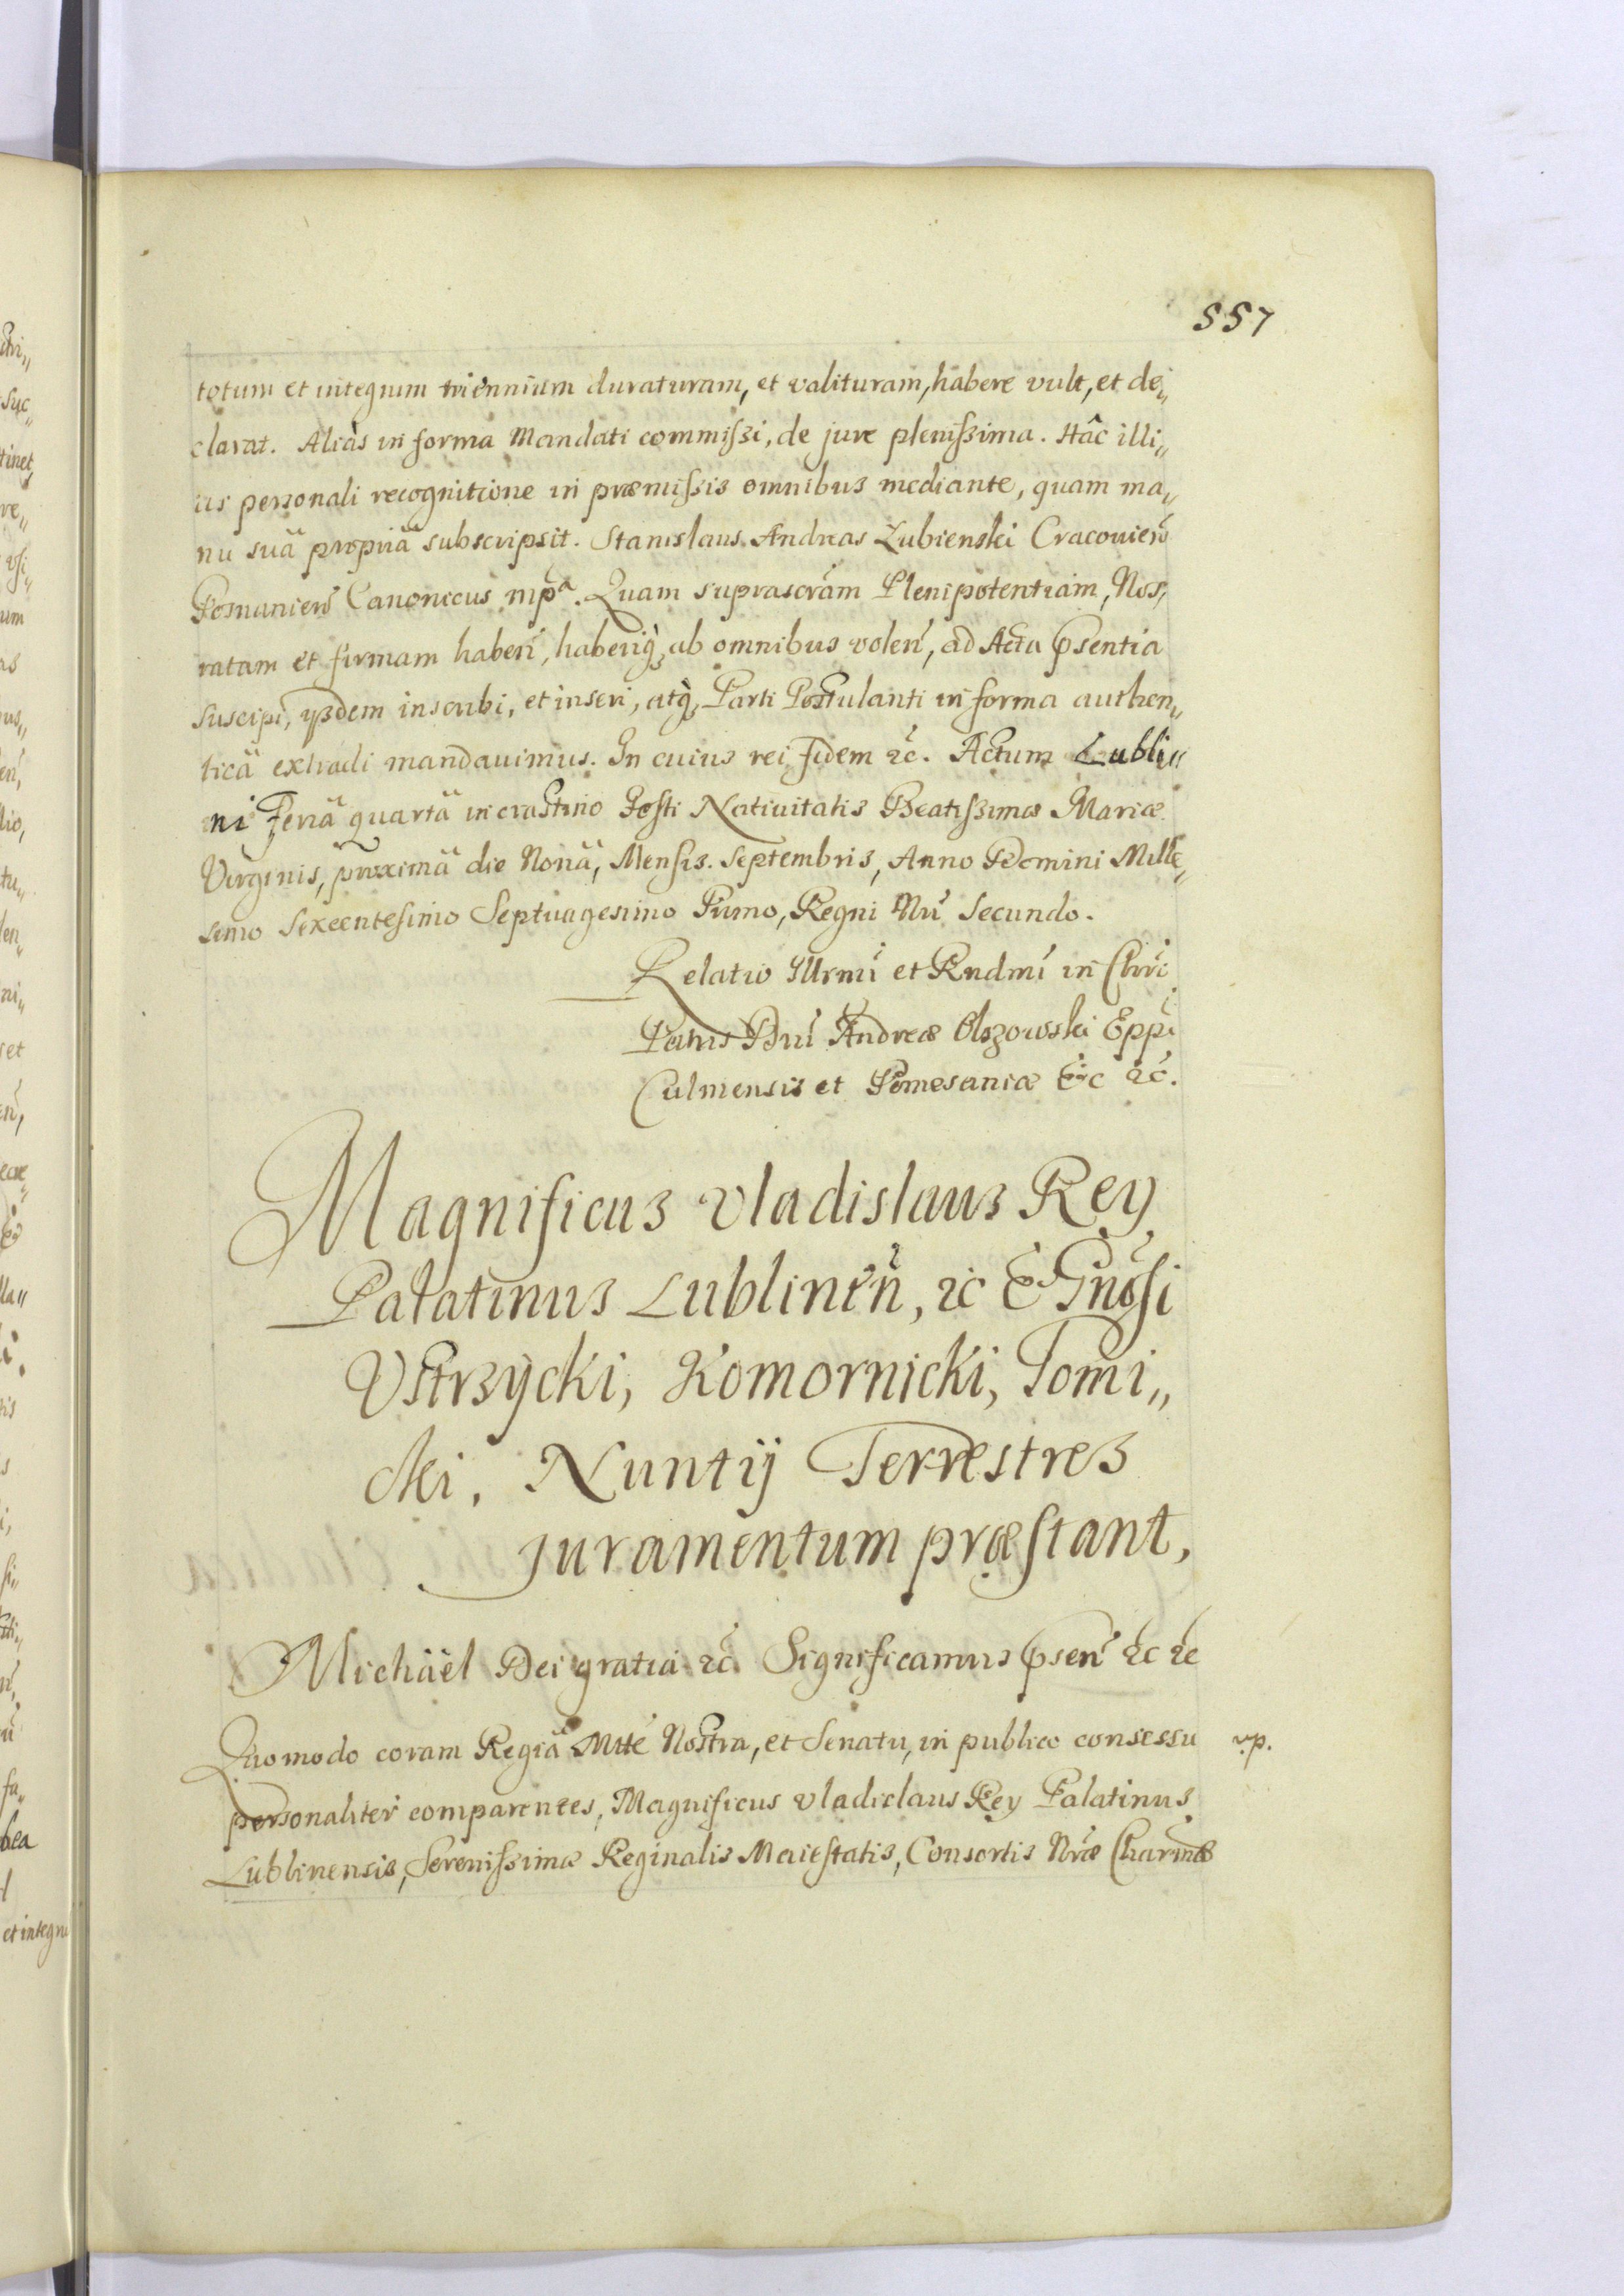 557
totum et integrum triennium duraturam, et valituram, habere vult, et de„
clarat. Aliàs in forma Mandati commissi, de jure plenissima. Hâc illi„
us personali recognitione in præmissis omnibus mediante, quam ma„
nu suâ propriâ subscripsit. Stanislaus Andreas Lubienski Cracovien̄
Posnanien̄ Canonicus mpa. Quam suprascr̄am Plenipotentiam, Nos,
ratam et firmam haberi, haberiq̀, ab omnibus volen̄, ad Acta p̄sentia
suscipi, ysdem inscribi, et inseri, atq̀, Parti Postulanti in forma authen„
ticâ extradi mandavimus. In cuius rei fidem &c. Actum Lubli„
ni Feriâ quartâ in crastino Festi Nativitatis Beatissimæ Mariæ
Virginis, proximâ die Nonâ, Mensis Septembris, Anno Domini Mille„
simo Sexcentesimo Septuagesimo Primo, Regni Nr̄i Secundo.
Relatio Illrmi et Rndmi in Chr̄i
Patris Dn̄i Andreæ Olszowski Epp̄i
Culmensis et Pomesaniæ &c &c.
Magnificus Vladislaus Rey
Palatinus Lublinen̄, &c & Gn̄osi
Vstrzycki, Komornicki, Tomi„
cki, Nuntij Terrestres
juramentum præstant,
Michäel Dei gratia &c. Significamus p̄sen̄ &c &c
Quomodo coram Regiâ Mtte Nostra, et Senatu, in publico consessu vp.
personaliter comparentes, Magnificus Vladislaus Rey Palatinus
Lublinensis, Serenissimæ Reginalis Maiestatis, Consortis Nr̄æ Charmæ
et integru